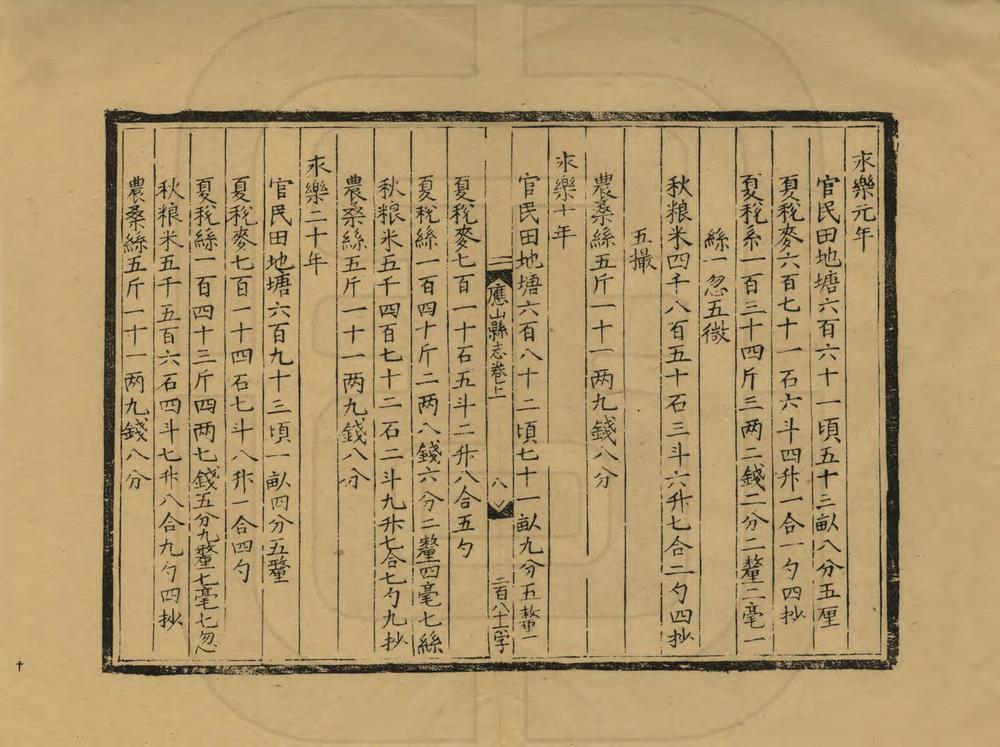 永樂元年
官民田地塘六百六十一頃五十三畝八分五厘
夏稅麥六百七十一石六斗四升一合一勺四抄
夏稅系一百三十四斤三两二錢二分二釐二毫一
絲一忽五微
秋粮米四千八百五十石三斗六升七合二勺四抄
五撮
農桑絲五斤一十一两九錢八分
永樂十年
官民田地塘六百八十二頃七十一畝九分五釐一
應山縣志卷上
八
二百八十一字
夏稅麥七百一十石五斗二升八合五勺
夏稅絲一百四十斤二两八錢六分二釐四毫七絲
秋粮米五千四百七十二石二斗九升七合七勺九抄
農桑絲五斤一十一两九錢八分
永樂二十年
官民田地塘六百九十三頃一畝四分五釐
夏稅麥七百一十四石七斗八升一合四勺
夏稅絲一百四十三斤四两七錢五分九釐七毫七忽
秋粮米五千五百六石四斗七升八合九勺四抄
農桑絲五斤一十一两九錢八分